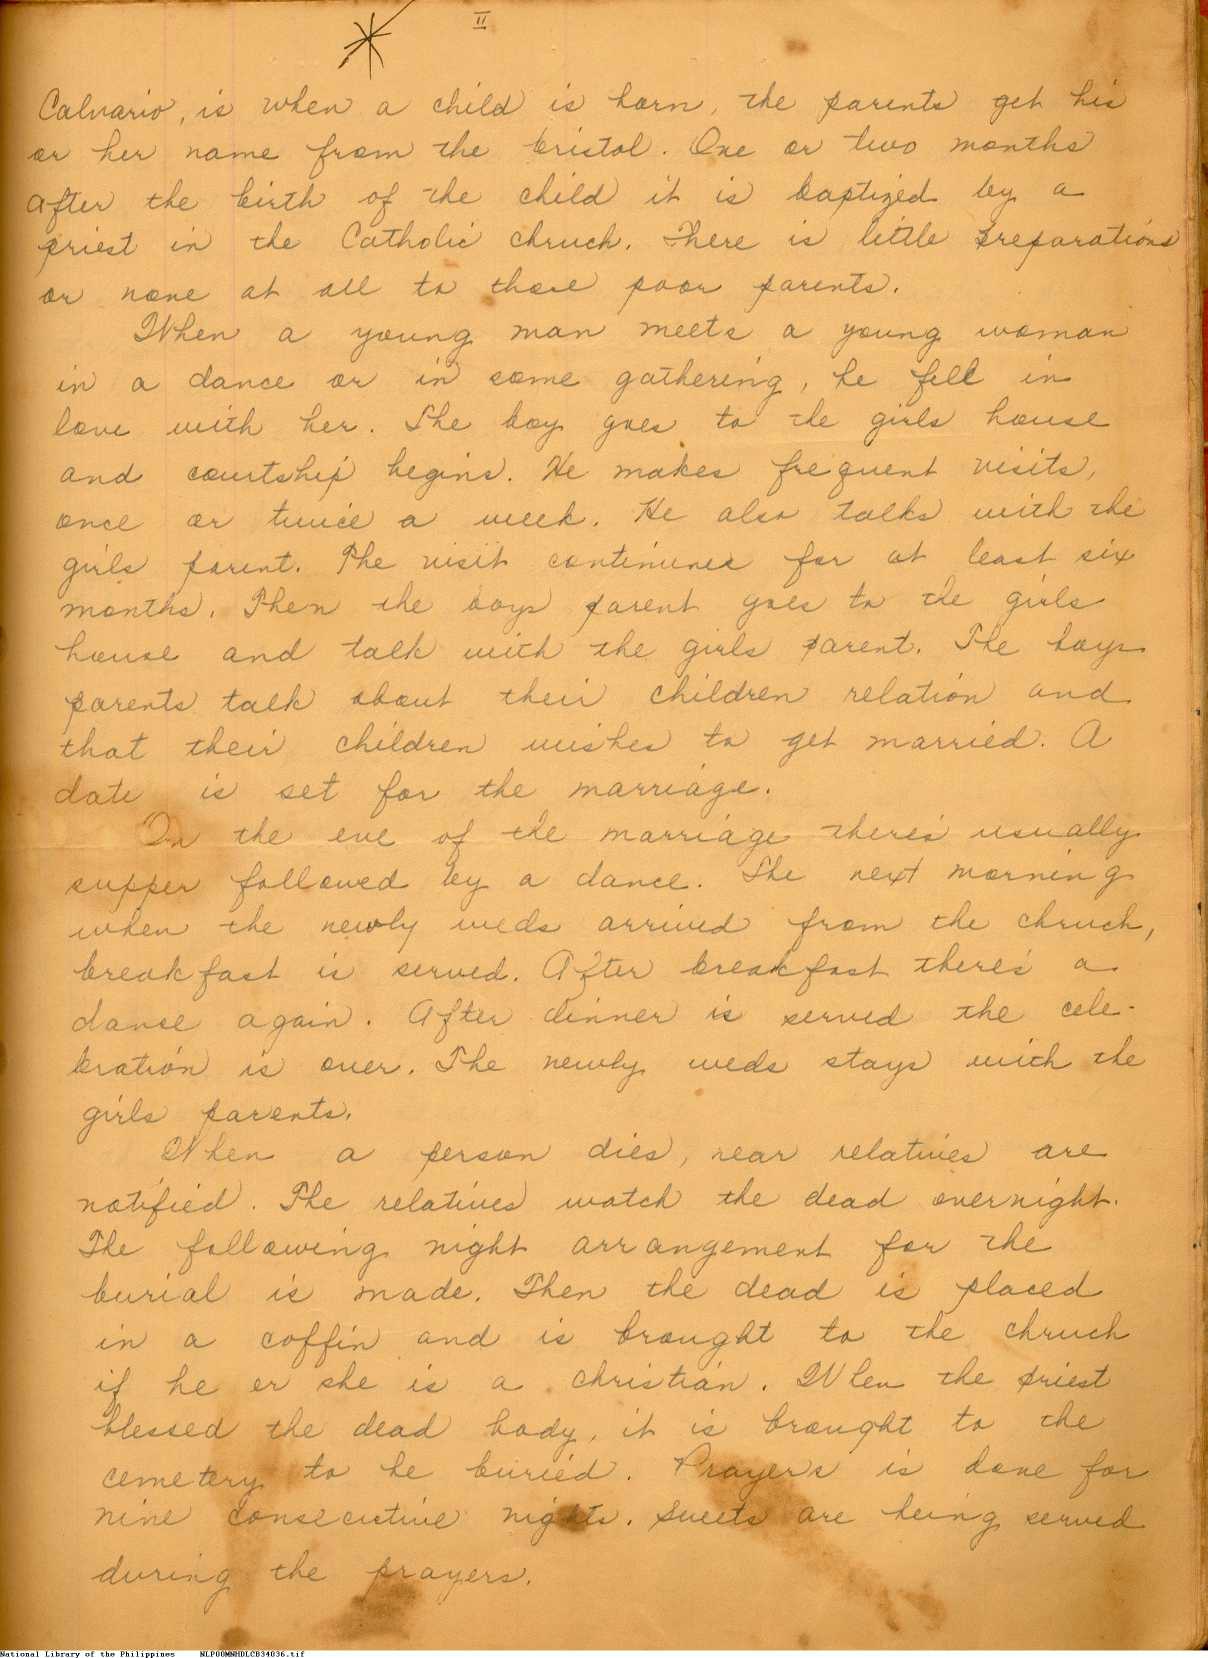 II
Calvario, is when a child is born, the parents get his
or her name from the bristol. One or two months
after the birth of the child it is baptized by a
priest in the Catholic chruch. There is little preparations
or none at all to those poor parents.
When a young man meets a young woman
in a dance or in some gathering, he fell in
love with her. The boy goes to the girls house
and courtship begins. He makes frequent visits,
once or twice a week. He also talks with the
girls parent. The visit continues for at least six
months. Then the boys parent goes to the girls
house and talk with the girls parent. The boys
parents talk about their children relation and
that their children wishes to get married. A
date is set for the marriage.
On the eve of the marriage there's usually
supper followed by a dance. The next morning
when the newly weds arrived from the chruch,
breakfast is served. After breakfast there's a
dance again. After dinner is served the cele-
bration is over. The newly weds stays with the
girls parents.
When a person dies, near relatives are
notified. The relatives watch the dead overnight.
The following night arrangement for the
burial is made. Then the dead is placed
in a coffin and is brought to the chruch
if he or she is a christian. When the priest
blessed the dead body, it is brought to the
cemetery to be buried. Prayers is done for
nine consecutive nights. Sweets are being served
during the prayers.
National Library of the Philippines NLPOOMNHDLCB34036.tif